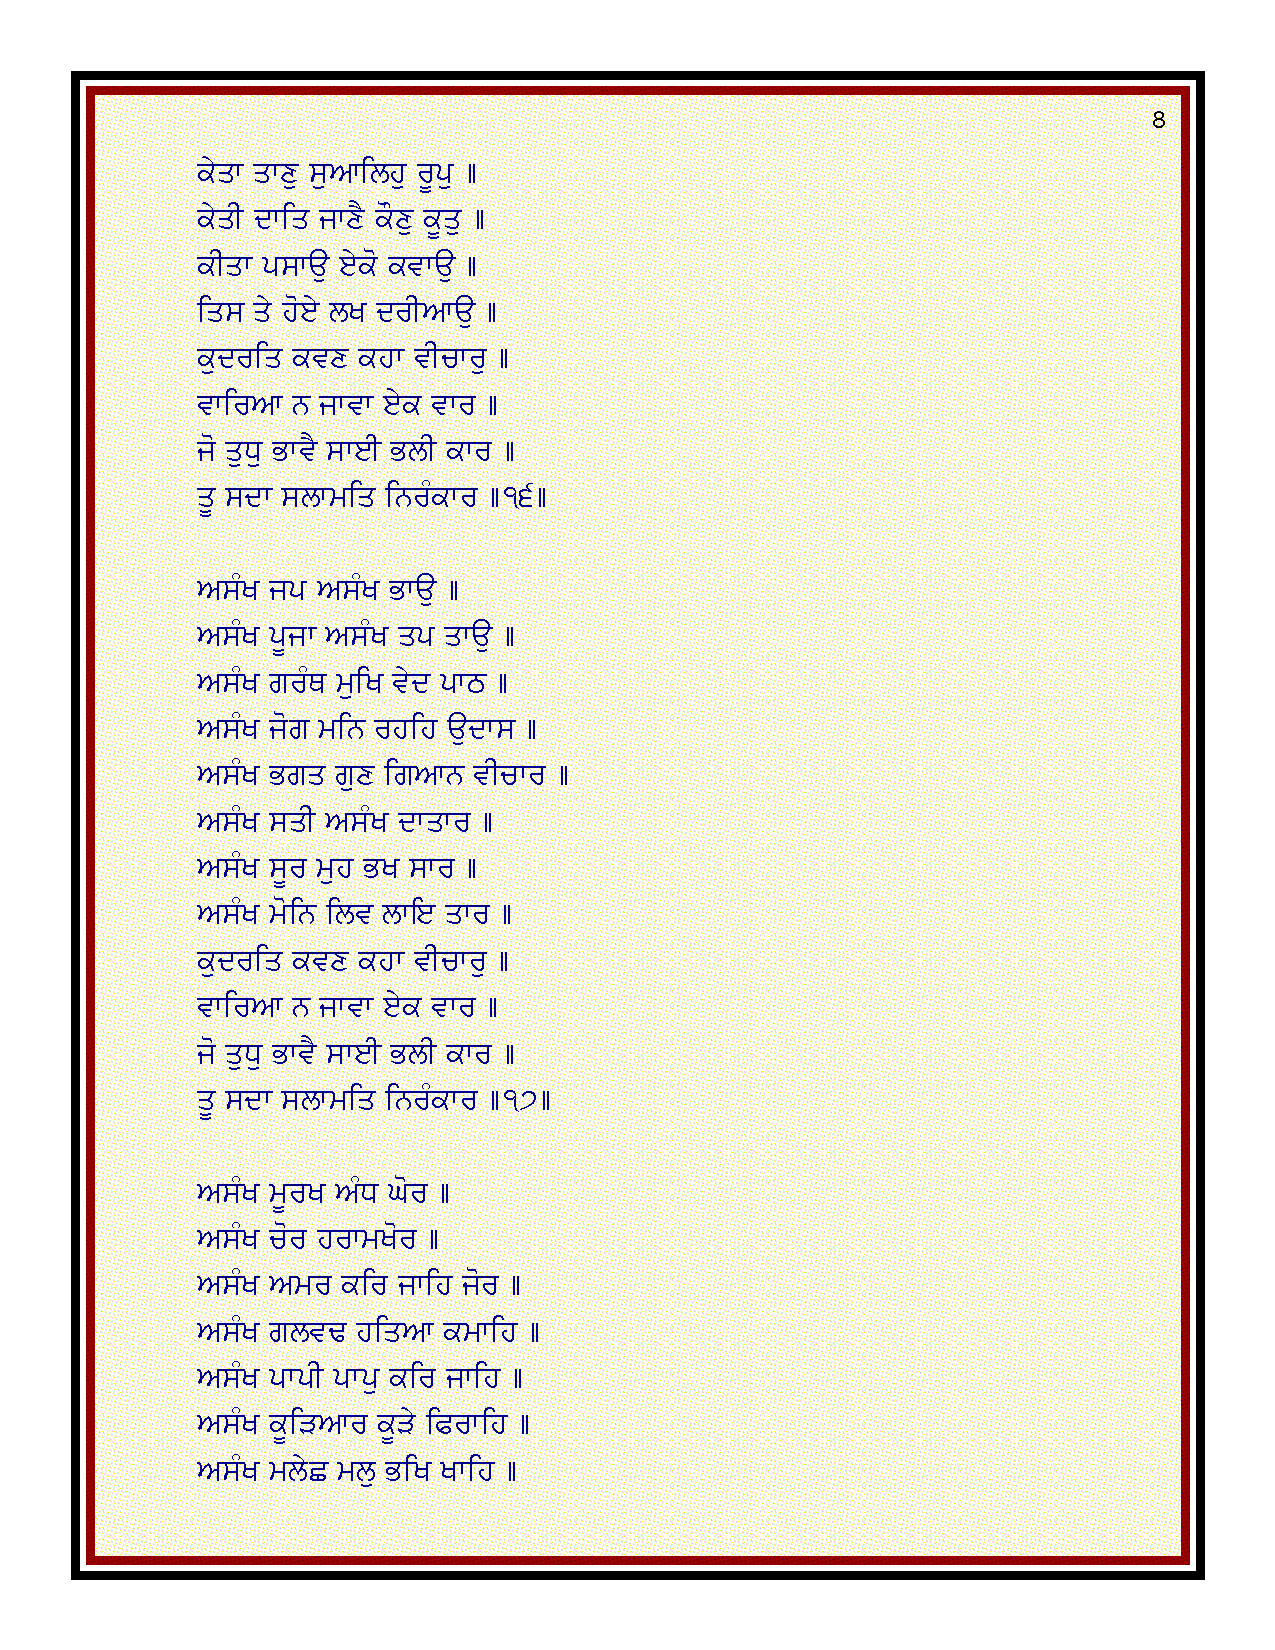 8
ਕੇਤਾ ਤਾਣੁ ਸੁਆਲਿਹੁ ਰੂਪੁ ॥
ਕੇਤੀ ਦਾਤਿ ਜਾਣੈ ਕੌਣੁ ਕੂਤੁ ॥
ਕੀਤਾ ਪਸਾਉ ਏਕੋ ਕਵਾਉ ॥
ਤਿਸ ਤੇ ਹੋਏ ਲਖ ਦਰੀਆਉ ॥
ਕੁਦਰਤਿ ਕਵਣ ਕਹਾ ਵੀਚਾਰੁ ॥
ਵਾਰਿਆ ਨ ਜਾਵਾ ਏਕ ਵਾਰ ॥
ਜੋ ਤੁਧੁ ਭਾਵੈ ਸਾਈ ਭਲੀ ਕਾਰ ॥
ਤੂ ਸਦਾ ਸਲਾਮਤਿ ਨਿਰੰਕਾਰ ॥੧੬॥
ਅਸੰਖ ਜਪ ਅਸੰਖ ਭਾਉ ॥
ਅਸੰਖ ਪੂਜਾ ਅਸੰਖ ਤਪ ਤਾਉ ॥
ਅਸੰਖ ਗਰੰਥ ਮੁਖਿ ਵੇਦ ਪਾਠ ॥
ਅਸੰਖ ਜੋਗ ਮਨਿ ਰਹਹਿ ਉਦਾਸ ॥
ਅਸੰਖ ਭਗਤ ਗੁਣ ਗਿਆਨ ਵੀਚਾਰ ॥
ਅਸੰਖ ਸਤੀ ਅਸੰਖ ਦਾਤਾਰ ॥
ਅਸੰਖ ਸੂਰ ਮੁਹ ਭਖ ਸਾਰ ॥
ਅਸੰਖ ਮੋਨਿ ਲਿਵ ਲਾਇ ਤਾਰ ॥
ਕੁਦਰਤਿ ਕਵਣ ਕਹਾ ਵੀਚਾਰੁ ॥
ਵਾਰਿਆ ਨ ਜਾਵਾ ਏਕ ਵਾਰ ॥
ਜੋ ਤੁਧੁ ਭਾਵੈ ਸਾਈ ਭਲੀ ਕਾਰ ॥
ਤੂ ਸਦਾ ਸਲਾਮਤਿ ਨਿਰੰਕਾਰ ॥੧੭॥
ਅਸੰਖ ਮੂਰਖ ਅੰਧ ਘੋਰ ॥
ਅਸੰਖ ਚੋਰ ਹਰਾਮਖੋਰ ॥
ਅਸੰਖ ਅਮਰ ਕਰਿ ਜਾਹਿ ਜੋਰ ॥
ਅਸੰਖ ਗਲਵਢ ਹਤਿਆ ਕਮਾਹਿ ॥
ਅਸੰਖ ਪਾਪੀ ਪਾਪੁ ਕਰਿ ਜਾਹਿ ॥
ਅਸੰਖ ਕੂੜਿਆਰ ਕੂੜੇ ਫਿਰਾਹਿ ॥
ਅਸੰਖ ਮਲੇਛ ਮਲੁ ਭਖਿ ਖਾਹਿ ॥